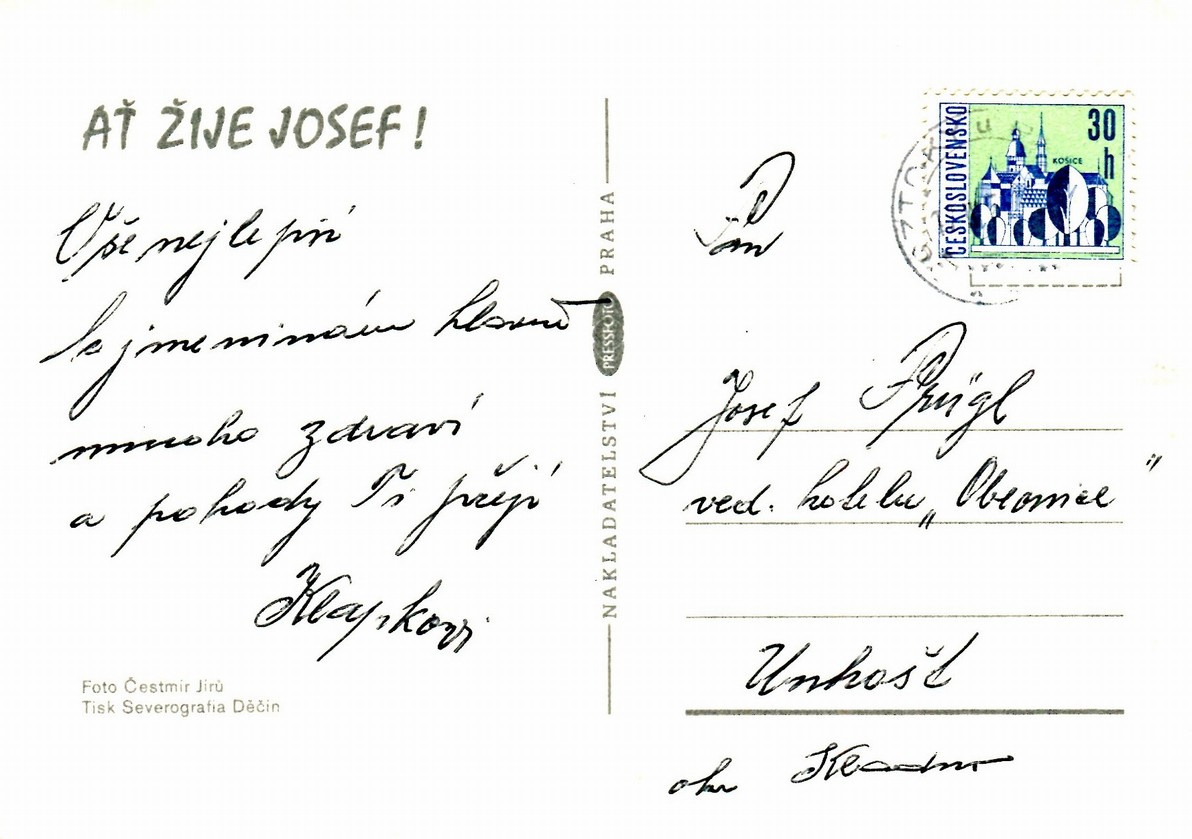 AŤ ŽIJE JOSEF!
Vše nejlepší
k jmeninám hlavně
mnoho zdraví
a pohody Ti přejí
Klapkovi
Foto Čestmír Jirů
Tisk Severografia Děčín
NAKLADATELSTVÍ PRESSFOTO PRAHA
ČESKOSLOVENSKO
30 h
KOŠICE
Pan
Josef Prügl
ved. hotelu „
Unhošť
okr Kladno